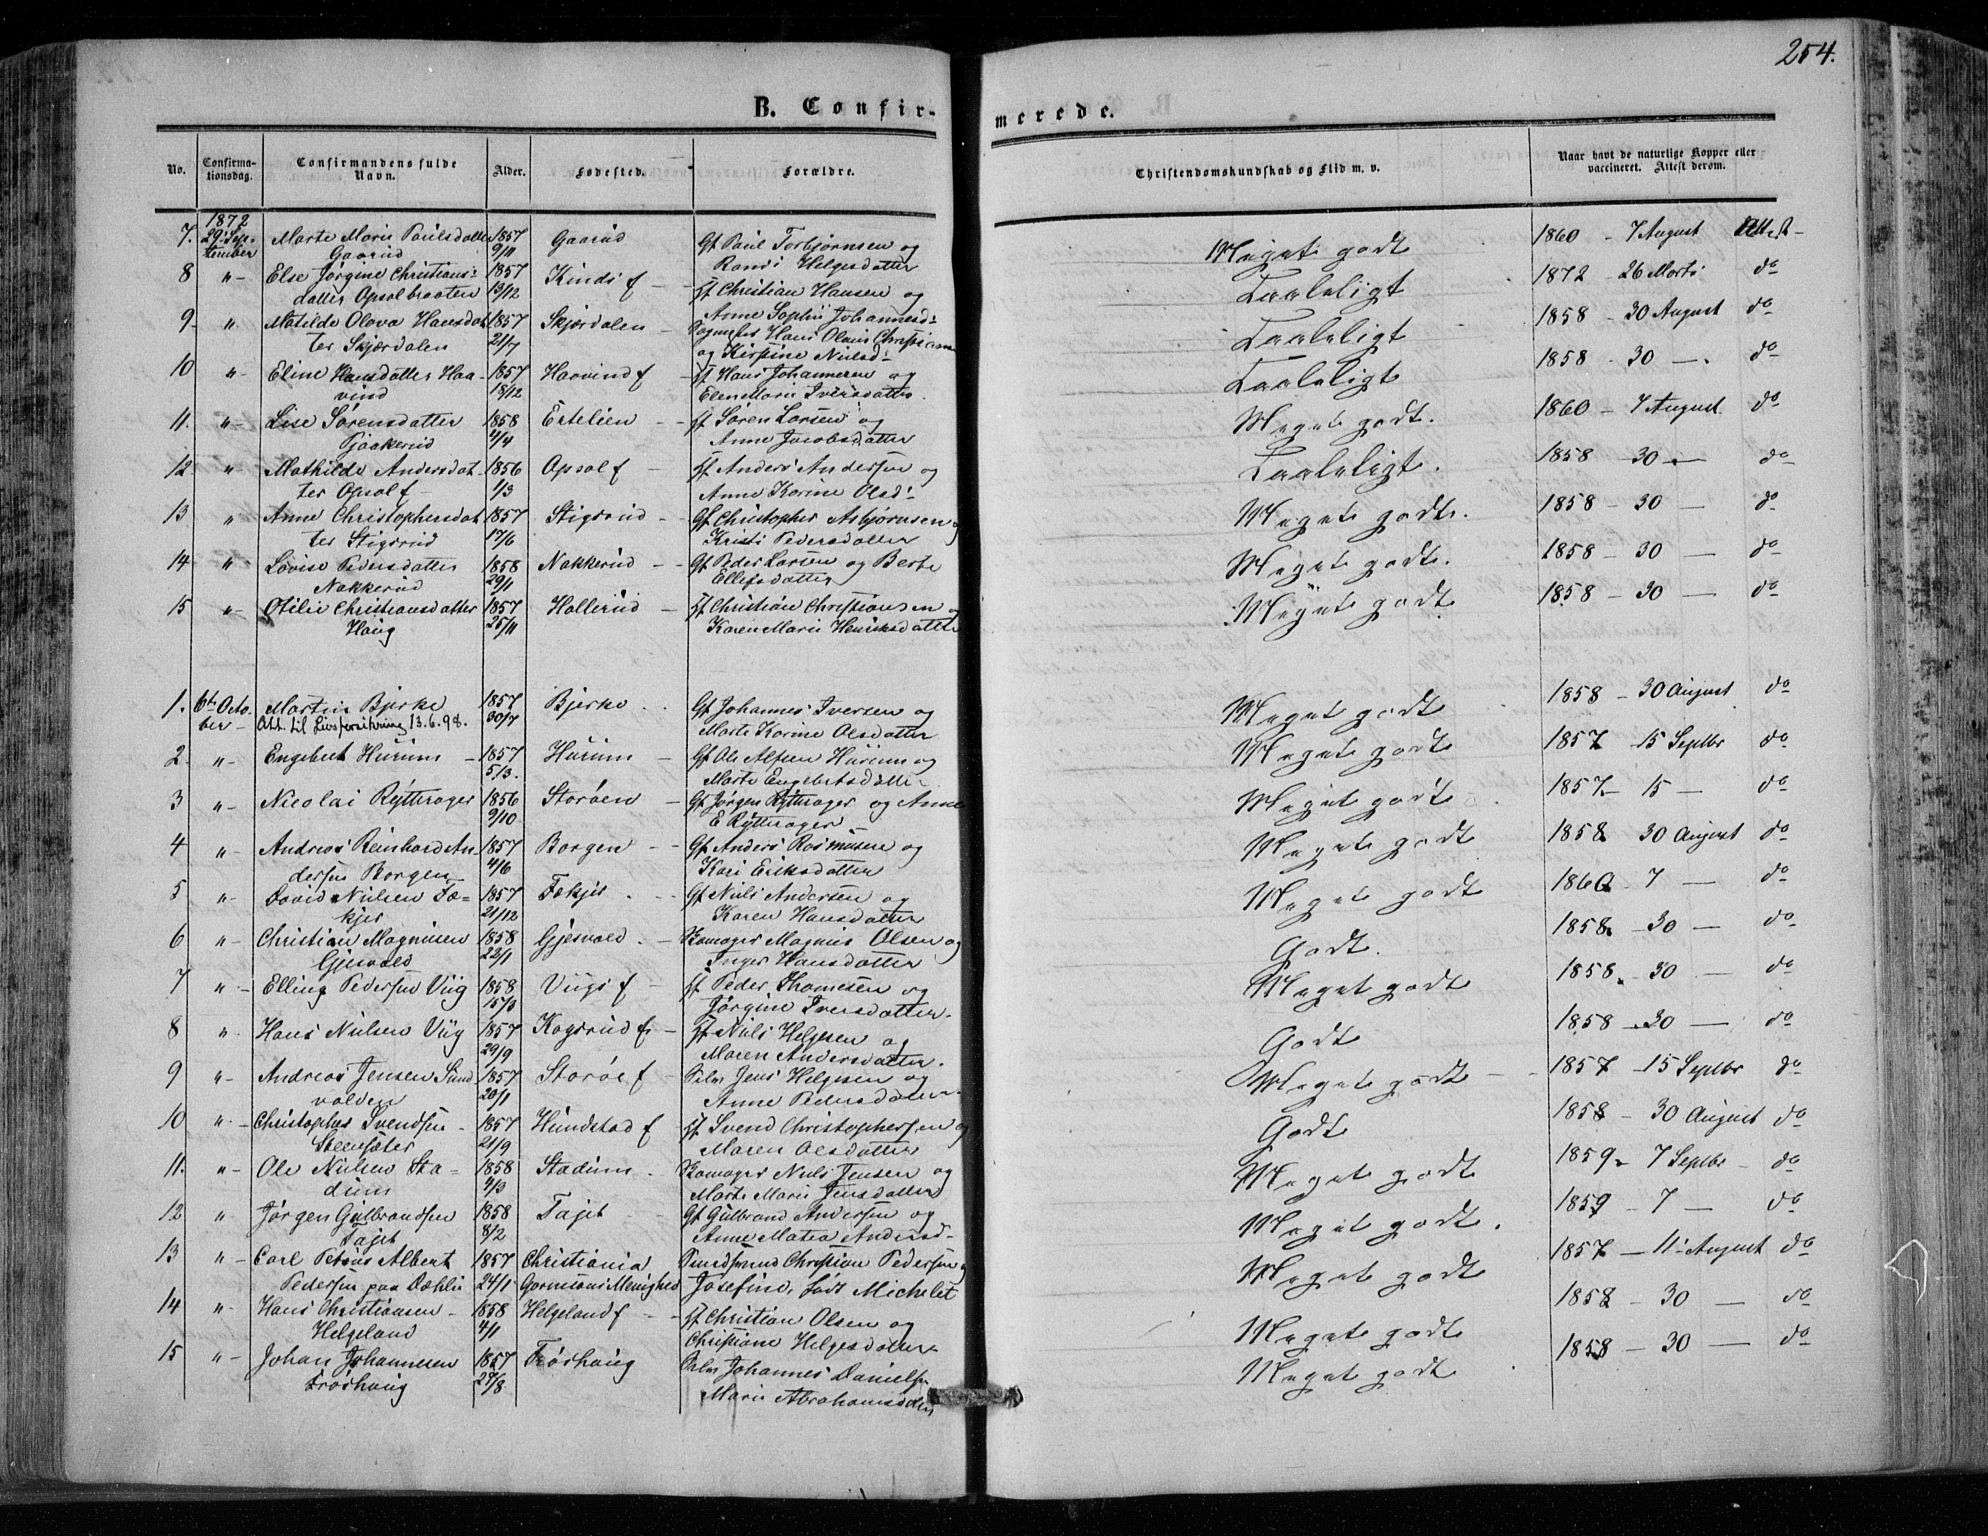 254.
B. Confir-
merede.
No.
Confirma-
tionsdag.
Confirmandens fulde
Navn.
Alder.
Fødested.
Forældre.
Christendomskundskab og Flid m. v.
Naar havt de naturlige Kopper eller
vaccineret. Attest derom.
1872
7. 29 Sep- Marte Marie Paulsdatter 1857 Gaarud Gf Paul Torbjørnsen og Meget godt 1860 - 7 August Attest
tember Gaarud 9/11 Randi Helgesdatter
8 " Else Jørgine Christians- 1857 Kinds f Christian Hansen og Taaleligt 1872 - 26 Marts do
datter Opsalbraaten 13/12 Anne Sophie Johannesd:
9 " Matilde Olava Hansdat 1857 Skjærdalen Hans Olaus Christiansen Taaleligt 1858 - 30 August do
ter Skjærdalen 21/7 og Kirstine Nielsd:
10 " Eline Hansdatter Haa- 1857 Haavind f Hans Johannesen og Taaleligt 1858 - 30 — do
vind 18/12 Elen Marie Iversdatter
11. " Lise Sørensdatter 1858 Søren Larsen og Meget godt. 1860 - 7 August do
4/4 Anne Jacobsdatter
12 " Mathilde Andersdat- 1856 Opsal f Anders Andersen og Taaleligt. 1858 - 30 — do
ter Opsal f 1/3 Anne Karine Olsd:
13 " Anne Christophersdat 1857 Stigsrud Gf Christopher Asbjørnsen og Meget godt. 1858 - 30 — do
ter Stigsrud 17/6 Kristi Pedersdatter
14 " Lovise Pedersdatter 1858 Nakkerud Gf Peder Larsen og Berte Meget godt. 1858 - 30 — do
Nakkerud 29/1 Ellefsdatter
15 " Otilie Christiansdatter 1857 Hollerud Christian Christiansen og Meget godt 1858 - 30 — do
Haug 25/11 Karen Marie Henriksdatter
1. 6te Octo Martin Bjerke 1857 Bjerke Gf Johannes Iversen og Meget godt 1858 - 30 August do
ber Att. til Livsforsikring 13.6.98. 30/7 Marte Karine Olsdatter
2 " Engebret Hurum 1857 Hurum Gf Ole Alfsen Hurum og Meget godt 1857 - 15 Septbr do
5/3. Marte Engebretsdatter
3 " Nicolai Rytterager 1856 Storøen Gf Jørgen Rytterager og Anne Meget godt 1857 - 15 — do
9/10 E Rytterager
4 " Andreas Reinhard An- 1857 Borgen Gf Anders Rasmusen og Meget godt 1858 30 August do
dersen Borgen 4/6 Kari Eriksdatter
5 " David Nielsen Fæ- 1857 Fekjer Gf Niels Andersen og Meget godt 1860 - 7 — do
kjer 21/12 Karen Hansdatter
6 " Christian Magnusen 1858 Gjesvold Magnus Olsen og Godt. 1858 - 30 — do
Gjesvold 22/1 Inger Hansdatter
7 " Elling Pedersen Viig 1858 Viigs f Peder Thomesen og Meget godt 1858 - 30 — do
15/3 Jørgine Iversdatter
8 " Hans Nielsen Viig 1857 Kagsrud f Niels Helgesen og Godt 1858 - 30 — do
29/9 Maren Andersdatter
9 " Andreas Jensen Sund 1857 Storøe f Jens Helgesen og Meget godt 1857 - 15 Septbr do
volden 20/1 Anne Pedersdatter
10 " Christopher Svendsen 1857 Hundstad f Svend Christophersen og Godt 1858 - 30 August do
Steensæter 21/9 Maren Olsdatter
11. " Ole Nielsen Sta- 1858 Stadum Niels Jensen og Meget godt 1859 - 7 Septbr do
dum 4/3 Marte Marie Jensdatter
12 " Jørgen Gulbrandsen 1858 Fajet Gf Gulbrand Andersen og Meget godt. 1859 - 7 — do
Fajet 8/2 Anne Matea Andersd-
13 " Carl Petrus Albert 1857 Christiania Christian Pedersen og Meget godt 1857 - 11 August do
Pedersen paa Dæhli 24/1 Garnisons Menighed Josefine, født Michelet
14 " Hans Christiansen 1858 Helgeland f Christian Olsen og Meget godt 1858 - 30 — do
Helgeland 4/1 Christiane Helgesdatter
15 " Johan Johannesen 1857 Frøshaug Johannes Danielsen Meget godt 1858 - 30 — do
Frøshaug 27/8 Marie Abrahamsdatter